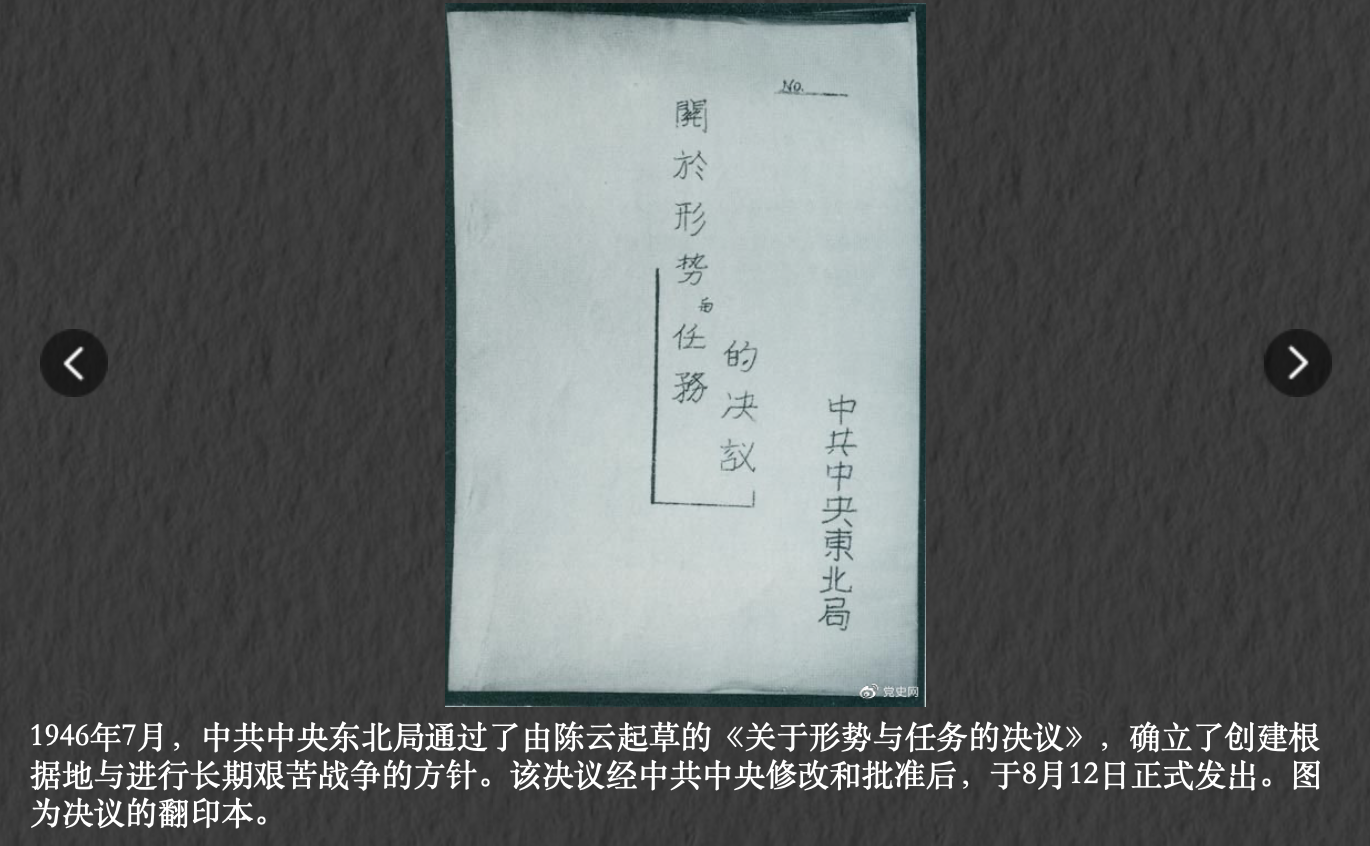 No.
關於形势與任務
的决議
中共中央東北局
党史网
1946年7月，中共中央东北局通过了由陈云起草的《关于形势与任务的决议》，确立了创建根
据地与进行长期艰苦战争的方针。该决议经中共中央修改和批准后，于8月12日正式发出。图
为决议的翻印本。